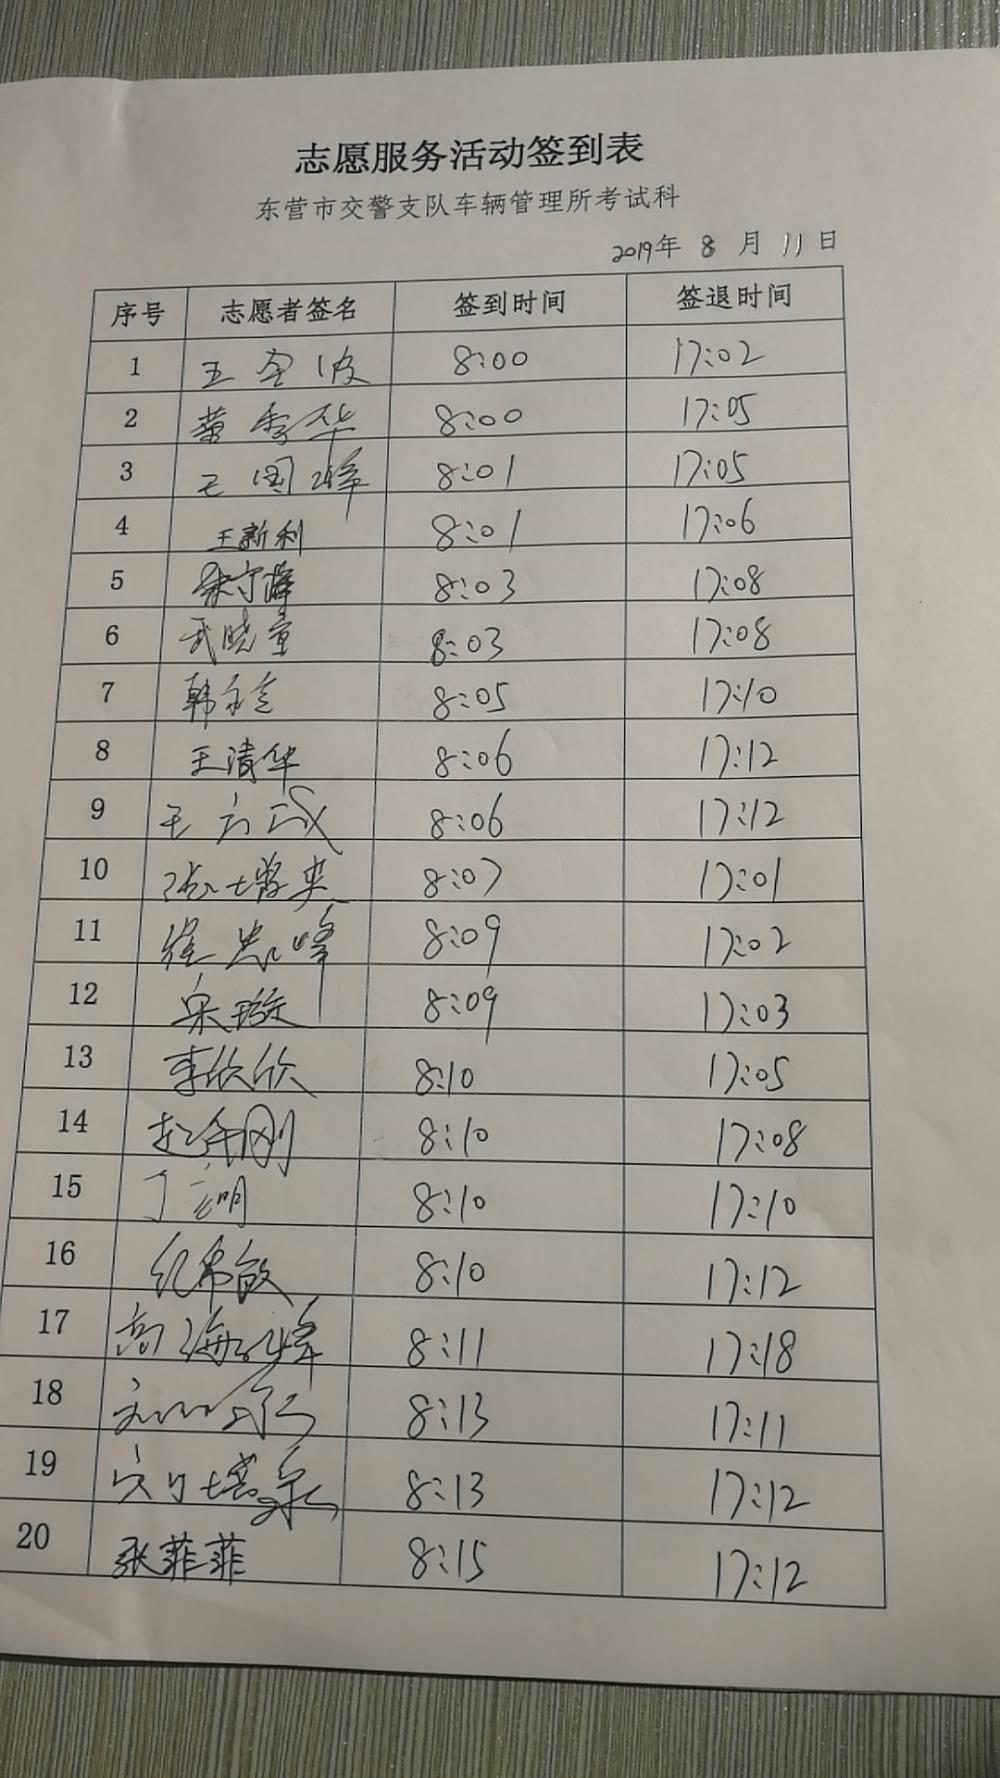 志愿服务活动签到表
东营市交警支队车辆管理所考试科
2019年 8 月 11 日
序号 志愿者签名 签到时间 签退时间
1 8:00 17:02
2 8:00 17:05
3 王国峰 8:01 17:05
4 王新利 8:01 17:06
5 8:03 17:08
6 武晓童 8:03 17:08
7 8:05 17:10
8 王清华 8:06 17:12
9 8:06 17:12
10 8:07 17:01
11 8:09 17:02
12 宋璇 8:09 17:03
13 李欣欣 8:10 17:05
14 8:10 17:08
15 8:10 17:10
16 8:10 17:12
17 高海峰 8:11 17:18
18 8:13 17:11
19 8:13 17:12
20 张菲菲 8:15 17:12